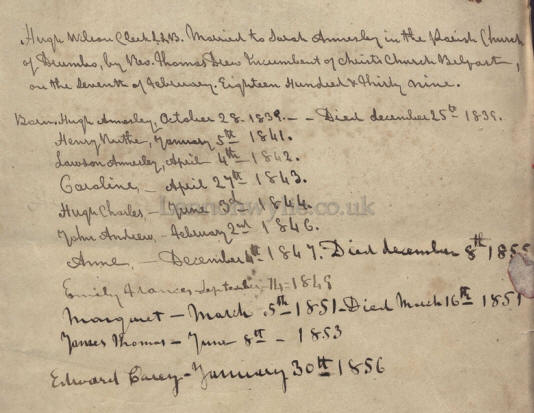 Hugh Wilson Clerk LLB. Married to Sarah Annesley in the Parish Church
of Drumbo, by Rev. Thomas Drew Incumbent of Christs Church Belfast,
on the seventh of February. Eighteen Hundred & Thirty nine.
Born. Hugh Annesley, October 28. 1839. – – Died december 25th 1839.
Henry, January 5th 1841.
Lawson Annesley, April 4th 1842.
Caroline – April 27th 1843.
Hugh Charles – June 3d – 1844.
John Andrew – February 2nd 1846.
Anne, – December 4th 1847. Died december 8th 1855
Emily Frances – September 14 – 1849
Margaret – March 5th – 1851 – Died March 16th 1851
James Thomas – June 8th – 1853
Edward Carey – January 30th 1856